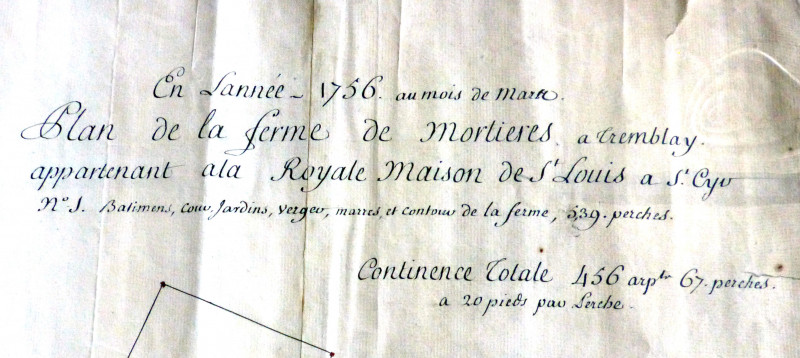 En Lannée 1756. au mois de Mars.
Plan de la ferme de Mortieres, a Tremblay.
appartenant a la Royale Maison de St. Louis a St. Cyr
No. 1. Batimens, Cour, Jardins, Verger, marres, et contour de la ferme, 539. perches.
Continence Totale 456 arpts 67. perches.
a 20 pieds par Perche.